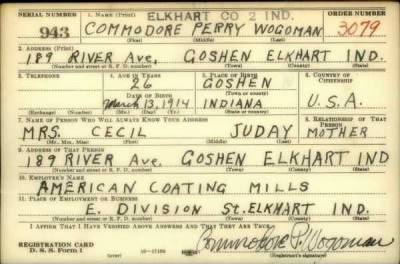 SERIAL NUMBER 1. NAME (Print) ELKHART CO 2 IND. ORDER NUMBER
943 COMMODORE PERRY WOGOMAN 3079
(First) (Middle) (Last)
2. ADDRESS (Print)
189 RIVER Ave, GOSHEN ELKHART IND.
(Number and street or R. F. D. number) (Town) (County) (State)
3. TELEPHONE 4. AGE IN YEARS 5. PLACE OF BIRTH 6. COUNTRY OF CITIZENSHIP
26 GOSHEN
DATE OF BIRTH (Town or county)
March 13, 1914 INDIANA U.S.A.
(Exchange) (Number) (Mo.) (Day) (Yr.) (State or country)
7. NAME OF PERSON WHO WILL ALWAYS KNOW YOUR ADDRESS 8. RELATIONSHIP OF THAT PERSON
MRS. CECIL JUDAY MOTHER
(Mr., Mrs., Miss) (First) (Middle) (Last)
9. ADDRESS OF THAT PERSON
189 RIVER Ave, GOSHEN ELKHART IND
(Number and street or R. F. D. number) (Town) (County) (State)
10. EMPLOYER'S NAME
AMERICAN COATING MILLS
11. PLACE OF EMPLOYMENT OR BUSINESS
E. DIVISION St. ELKHART IND.
(Number and street or R. F. D. number) (Town) (County) (State)
I AFFIRM THAT I HAVE VERIFIED ABOVE ANSWERS AND THAT THEY ARE TRUE.
REGISTRATION CARD
D. S. S. Form 1 (over) Commodore P. Wogoman
(Registrant's signature)